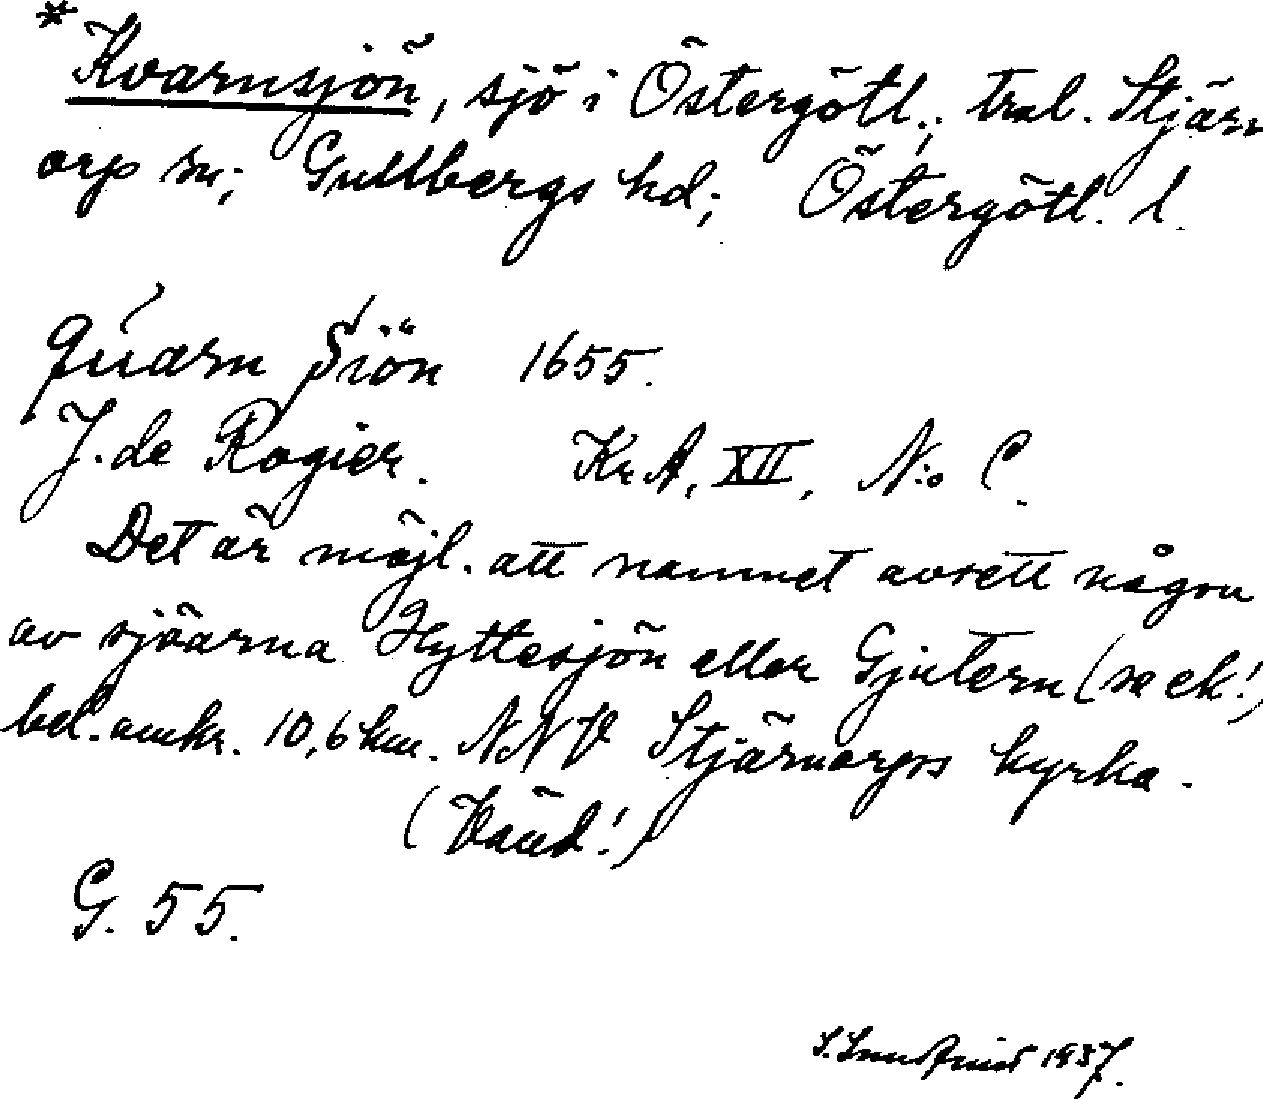 *Kvarnsjön, sjö i Östergötl.; trol. Stjärn
orp sn; Gullbergs hd; Östergötl. l.
quarn Siön 1655.
J. de Rogier. Kr.A, XII, N:o C.
Det är möjl. att namnet avsett någon
av sjöarna Hyttesjön eller Gjutern (se ek!)
bel. omkr. 10,6 km. NNV Stjärnorps kyrka.
(Vänd!)
G. 55.
1937.